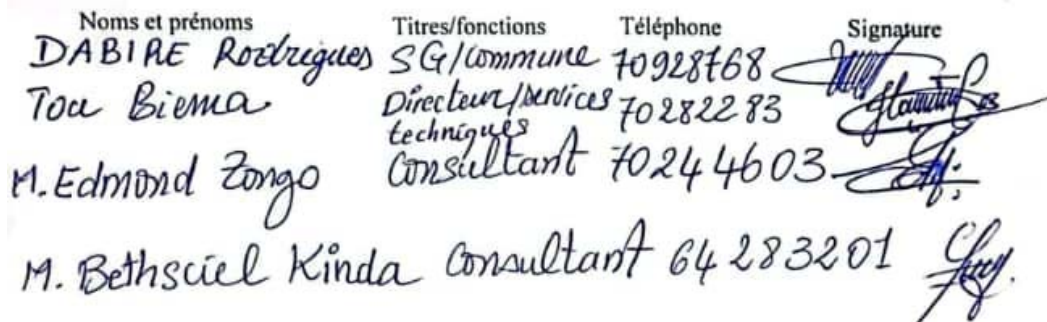 Noms et prénoms Titres/fonctions Téléphone Signature
DABIRE Rodrigues SG/commune 70928768
Tou Biema Directeur/services techniques 70282283
M. Edmond Zongo Consultant 70244603
M. Bethsciel Kinda Consultant 64283201